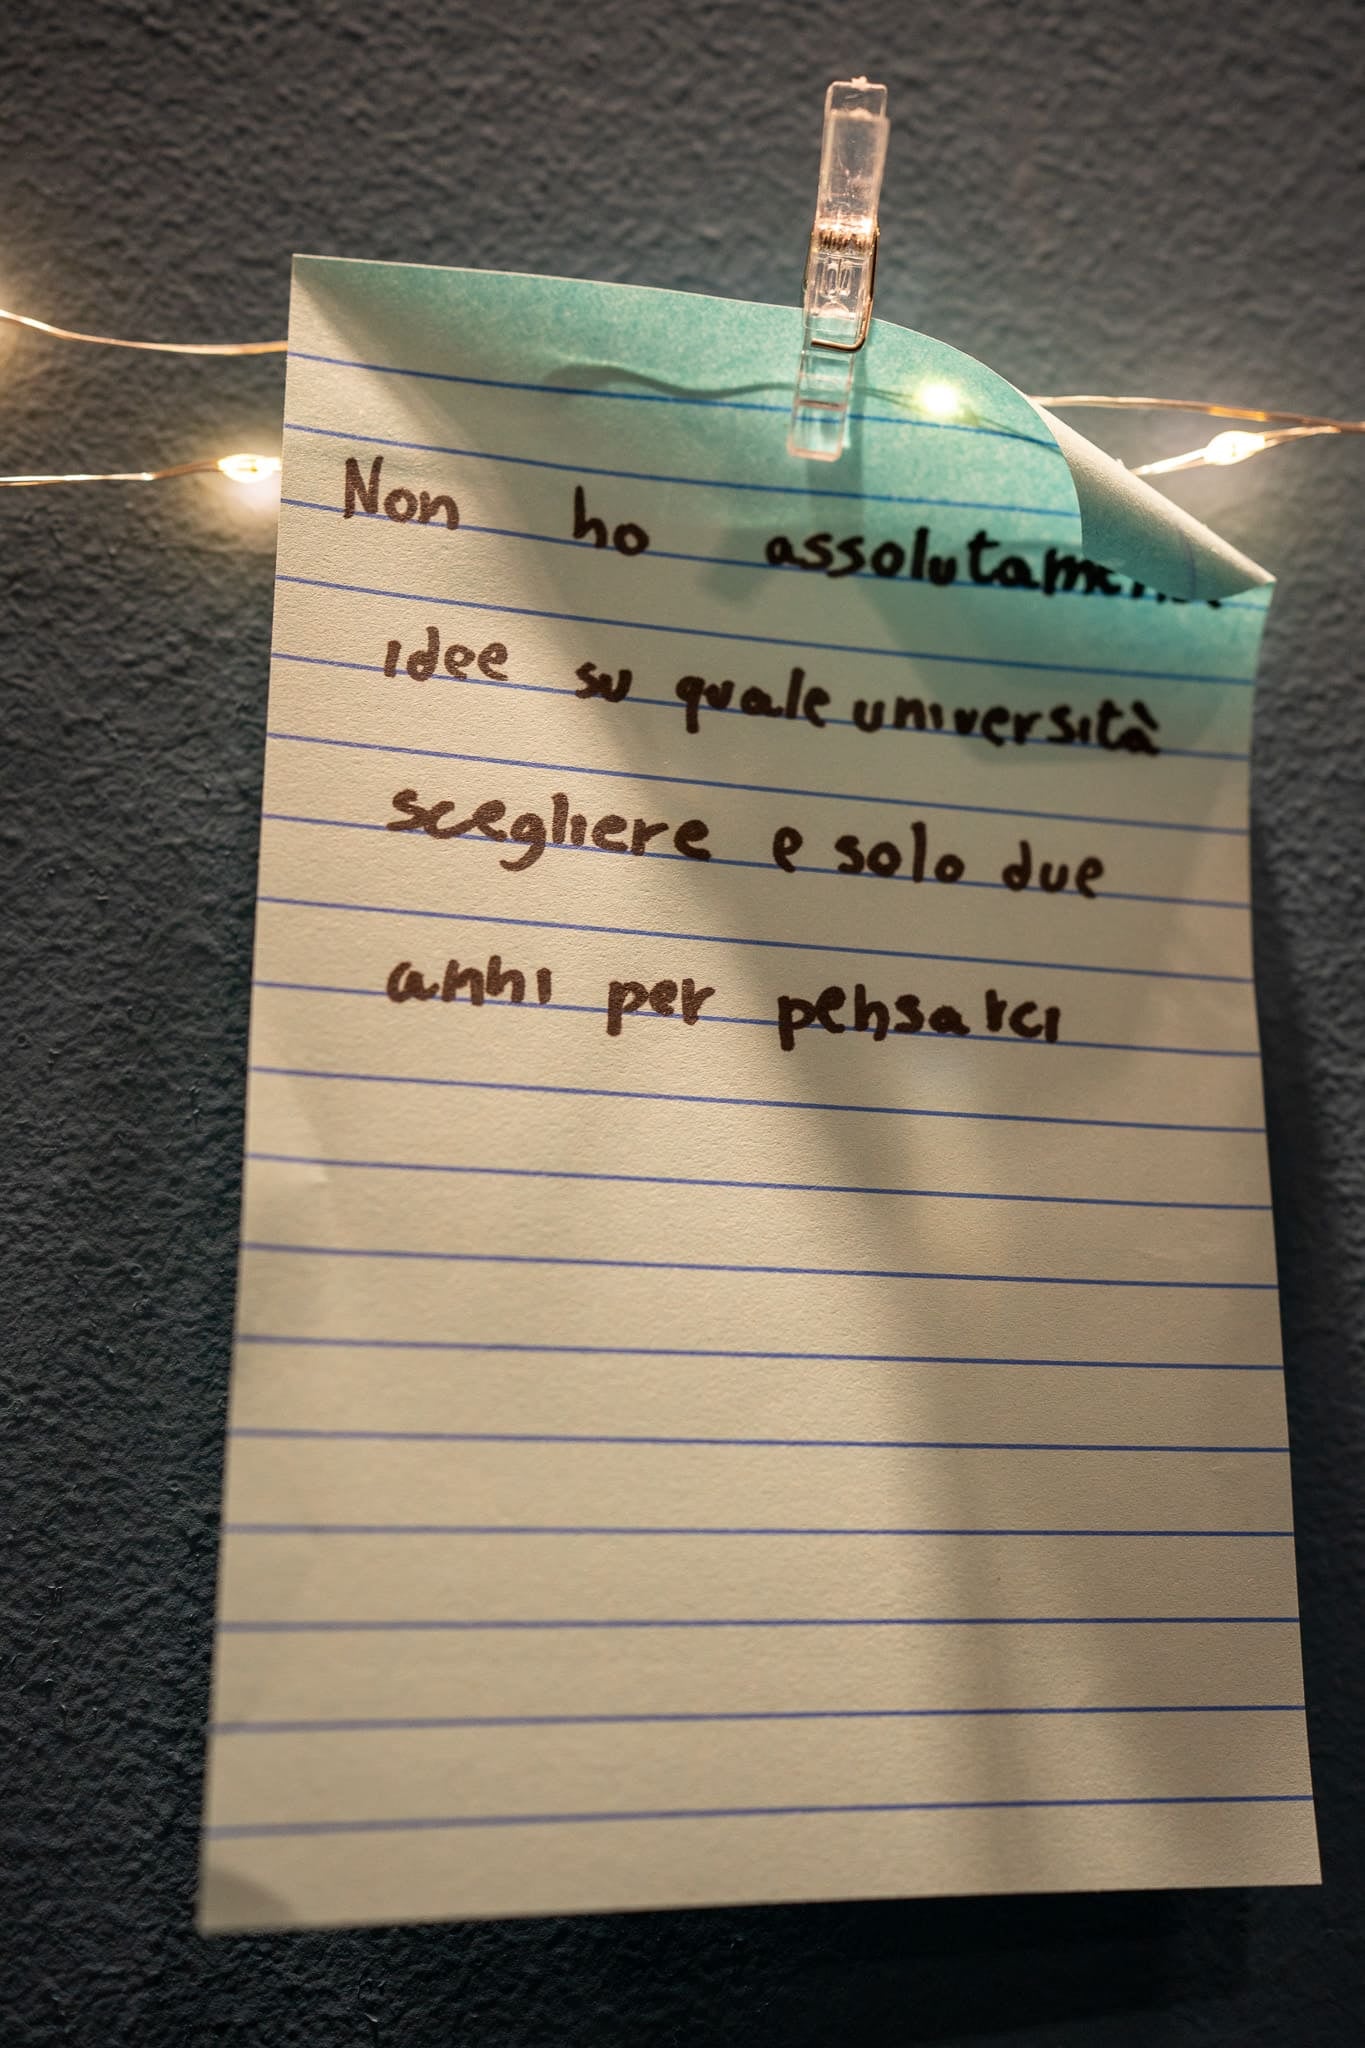 Non ho assolutamente
idee su quale università
scegliere e solo due
anni per pensarci